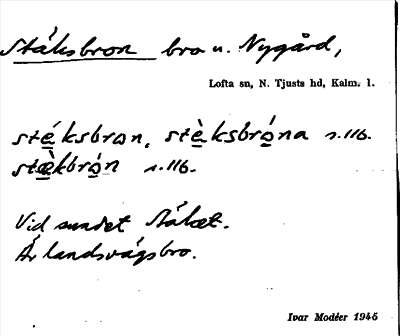 Stäksbron bro u. Nygård,
Lofta sn, N. Tjusts hd, Kalm. l.
stéksbron, stèksbróna s. 116.
stæ̀kbrón s. 116.
Vid sundet Stäket.
Är landsvägsbro.
Ivar Modéer 1945